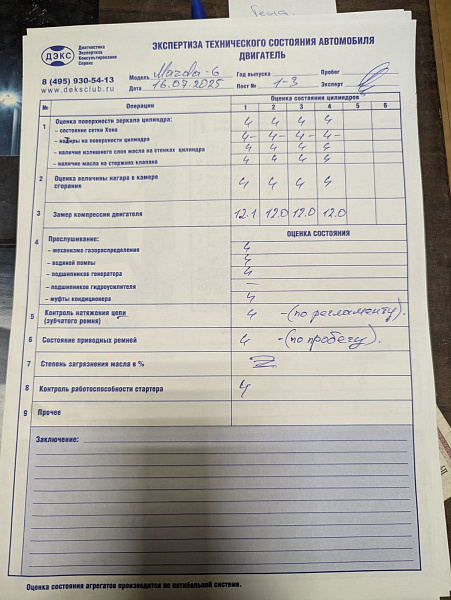 Гена.
ДЭКС
Диагностика
Экспертиза
Консультирование
Сервис
8 (495) 930-54-13
www.deksclub.ru
ЭКСПЕРТИЗА ТЕХНИЧЕСКОГО СОСТОЯНИЯ АВТОМОБИЛЯ
ДВИГАТЕЛЬ
Модель Mazda-6 Год выпуска Пробег
Дата 16.07.2025 Пост № 1-3 Эксперт
№ Операции Оценка состояния цилиндров
1 2 3 4 5 6
1 Оценка поверхности зеркала цилиндра:
– состояние сетки Хона 4 4 4 4
– задиры на поверхности цилиндра 4- 4- 4- 4-
– наличие излишнего слоя масла на стенках цилиндра 4 4 4 4
– наличие масла на стержнях клапана 4 4 4 4
2 Оценка величины нагара в камере
сгорания 4 4 4 4
3 Замер компрессии двигателя 12.1 12.0 12.0 12.0
4 Прослушивание: ОЦЕНКА СОСТОЯНИЯ
– механизма газораспределения 4
– водяной помпы 4
– подшипников генератора 4
– подшипников гидроусилителя —
– муфты кондиционера 4
5 Контроль натяжения цепи
(зубчатого ремня) 4 -(по регламенту).
6 Состояние приводных ремней 4 -(по пробегу).
7 Степень загрязнения масла в %
8 Контроль работоспособности стартера 4
9 Прочее
Заключение:
Оценка состояния агрегатов производится по пятибальной системе.